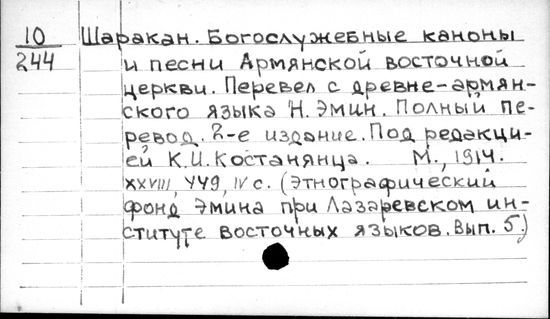 10 Шаракан. Богослужебные каноны
244 и песни Армянской восточной
церкви. Перевел с древне-армян-
ского языка Н. Эмин. Полный пе-
ревод. 2-е издание. Под редакци-
ей К.И. Костанянца. М., 1914.
XXVIII, 449, IV с. (Этнографический
фонд Эмина при Лазаревском ин-
ституте восточных языков. Вып. 5.)